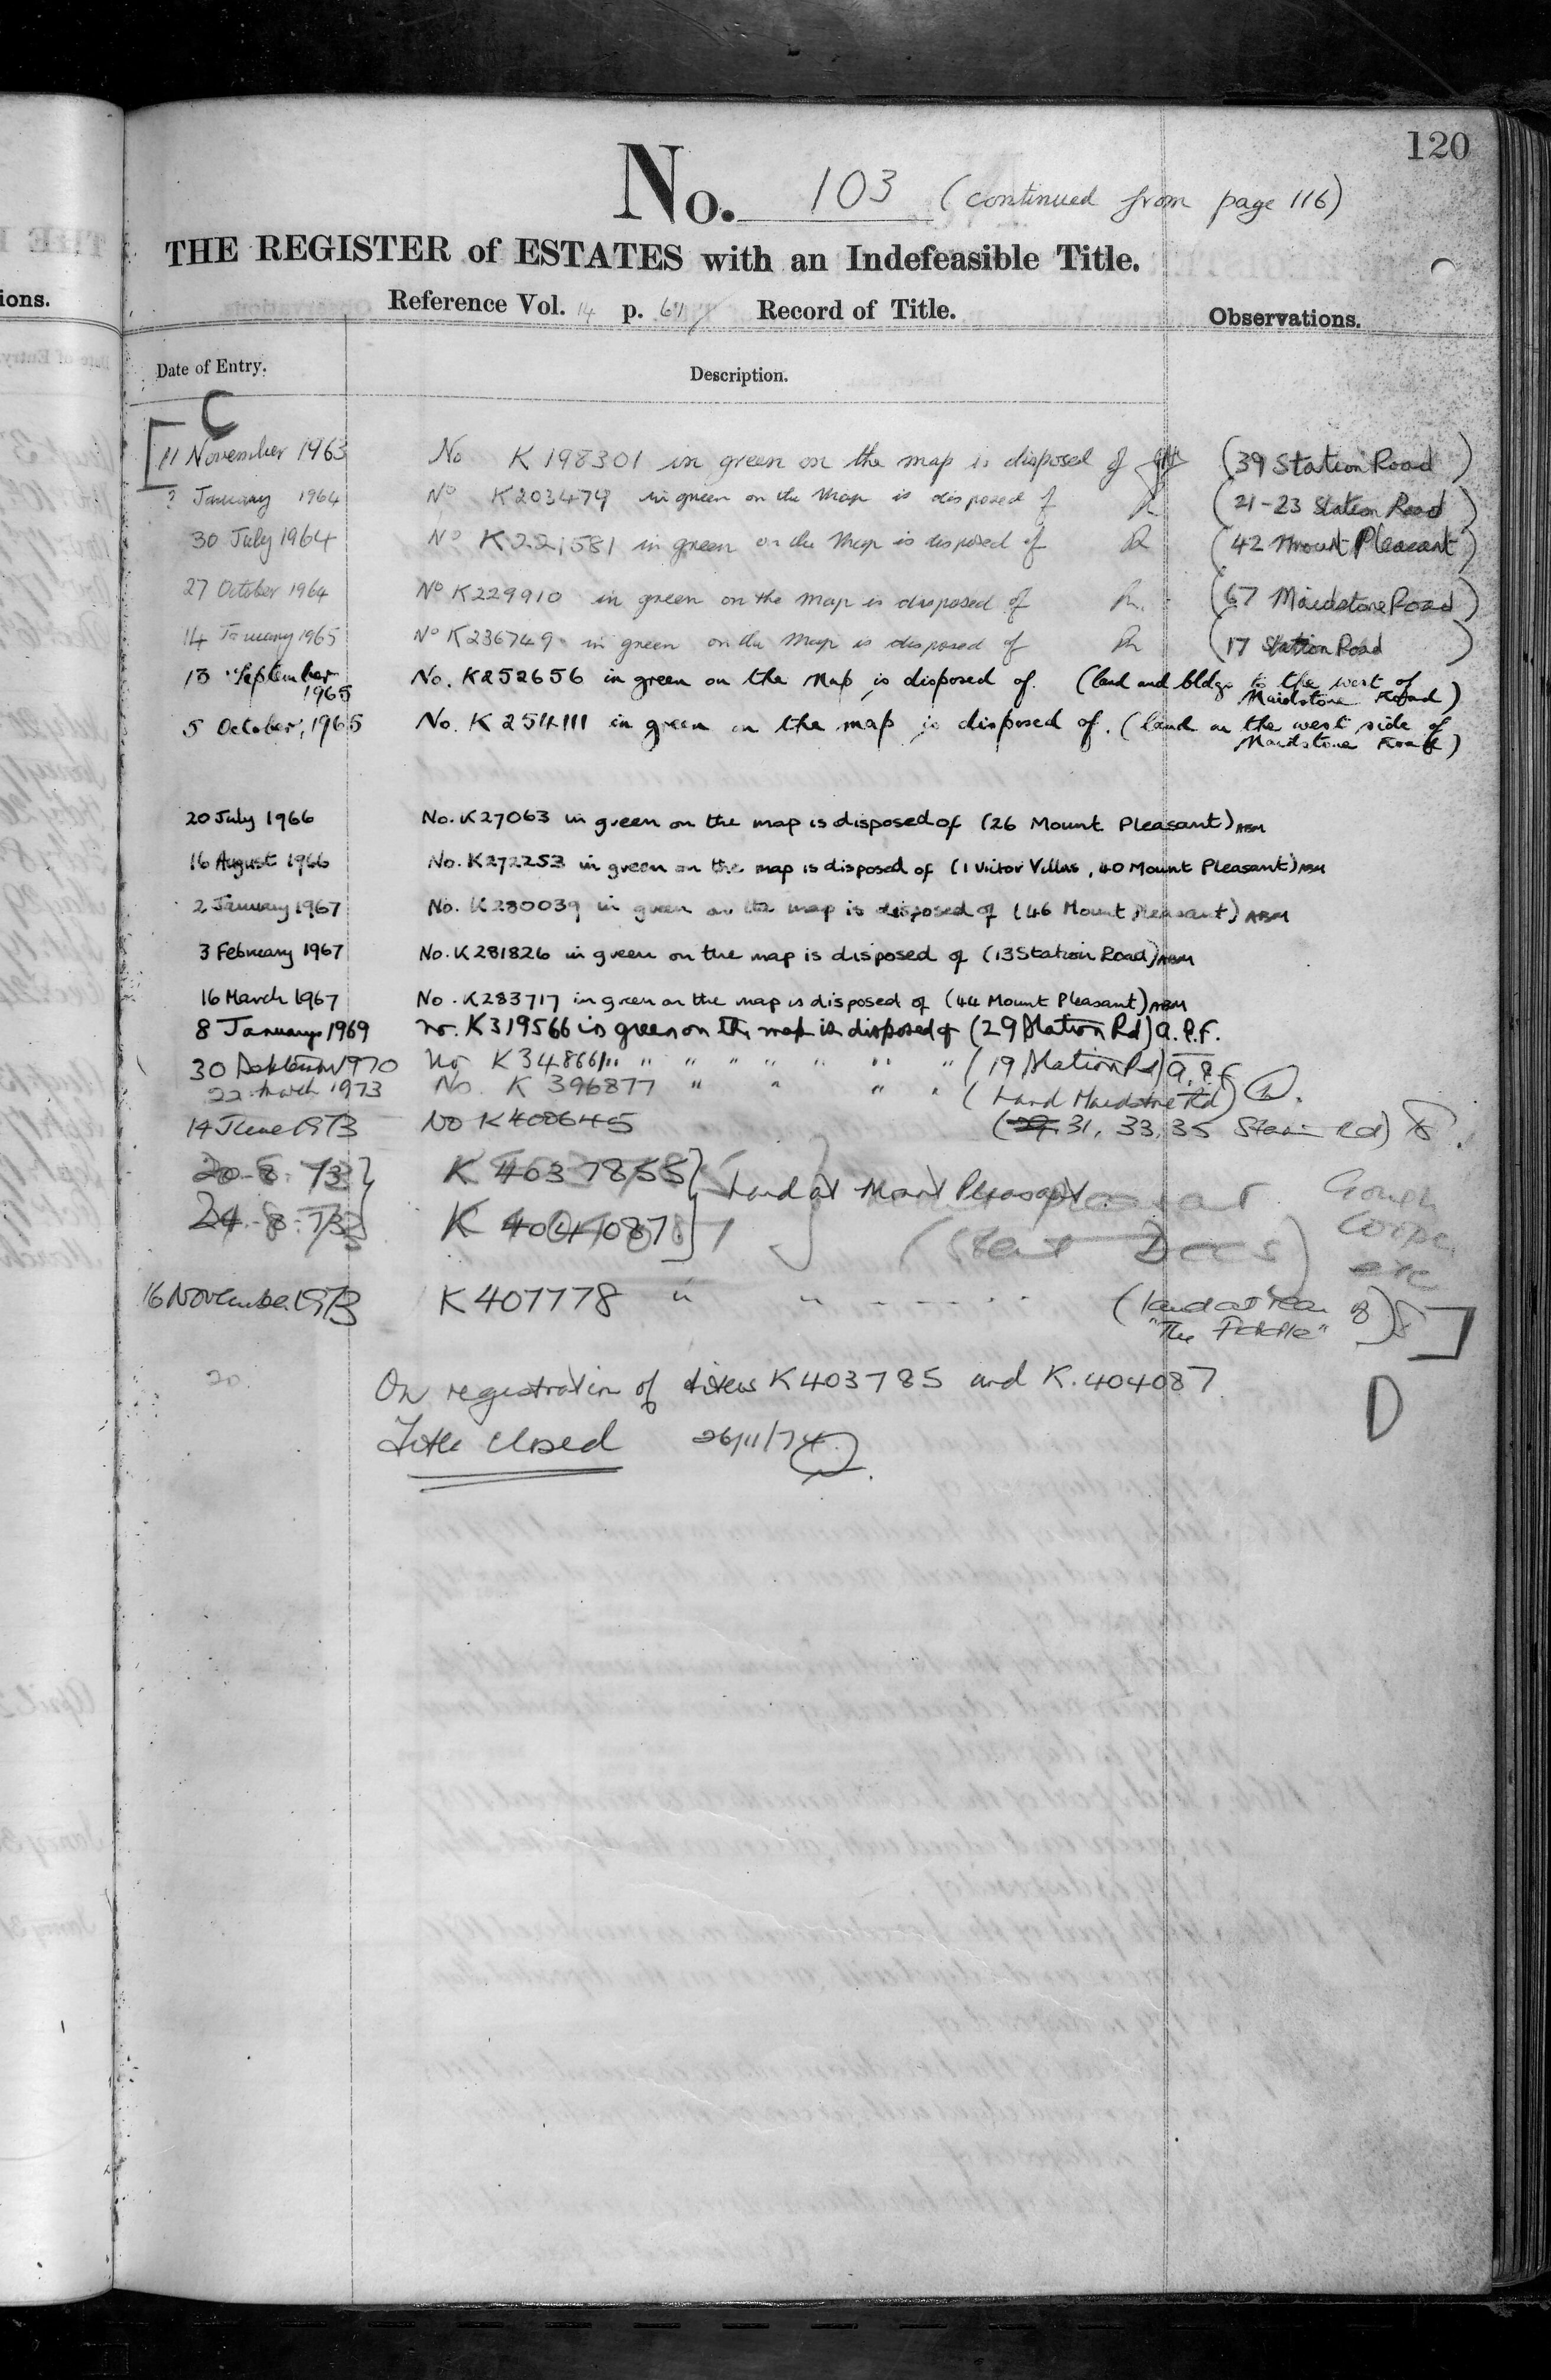 120
No. 103 (continued from page 116)
THE REGISTER of ESTATES with an Indefeasible Title.
ions.
Reference Vol. 14 p. Record of Title.
Observations.
Date of Entry.
Description.
C
11 November 1963 No K 198301 in green on the map is disposed of (39 Station Road)
? January 1964 No K203479 in green on the map is disposed of R (21-23 Station Road)
30 July 1964 No K221581 in green on the map is disposed of R (42 Mount Pleasant)
27 October 1964 No K229910 in green on the map is disposed of R. (67 Maidstone Road)
14 January 1965 No K236749 in green on the map is disposed of R (17 Station Road)
13 September No. K252656 in green on the map is disposed of. (land and bldgs to the west of
1965 Maidstone Road)
5 October, 1965 No. K 254111 in green on the map is disposed of. (land on the west side of
Maidstone Road)
20 July 1966 No. K27063 in green on the map is disposed of (26 Mount Pleasant) ABM
16 August 1966 No. K272253 in green on the map is disposed of (1 Victor Villas, 40 Mount Pleasant) ABM
2 January 1967 No. K280039 in green on the map is disposed of (46 Mount Pleasant) ABM
3 February 1967 No. K281826 in green on the map is disposed of (13 Station Road) ABM
16 March 1967 No. K283717 in green on the map is disposed of (44 Mount Pleasant) ABM
8 January 1969 No. K319566 in green on the map is disposed of (29 Station Rd) a.P.F.
30 1970 No K34866 " " " " " " " (19 Station Rd) a.P.F
22 March 1973 No. K 396877 " " " " (Land Maidstone Rd)
14 June 1973 No K400645 (29. 31, 33, 35 Station Rd)
20-8-73 } K 403785 } Land at Mount Pleasant
24-8-73 } K 404087 }
Gough
Cooper
16 November 1973 K407778 " " - - - - (land at rear of
"The Fiddle")
D
On registration of titles K403785 and K.404087
Title closed 26/11/74